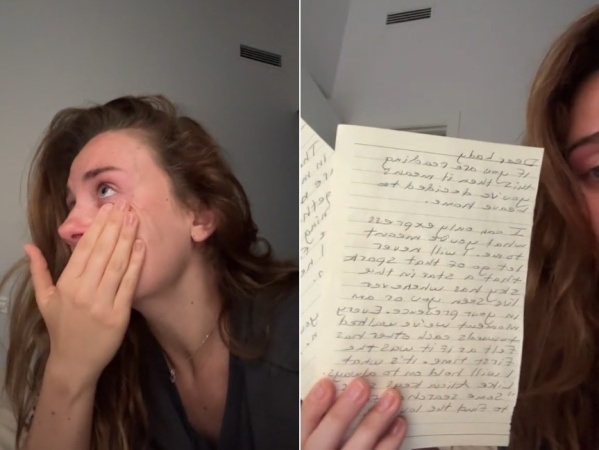 Dear baby
If you are reading
this then it means
you've decided to
leave home.
I can only express
what you've meant
to me. I will never
let go of that spark
that a star in the
sky has whenever
I've seen you or am
in your presence. Every
moment we've walked
towards each other has
felt as if it was the
first time. It's what
I will hold on to always.
Like
Some search
to find the